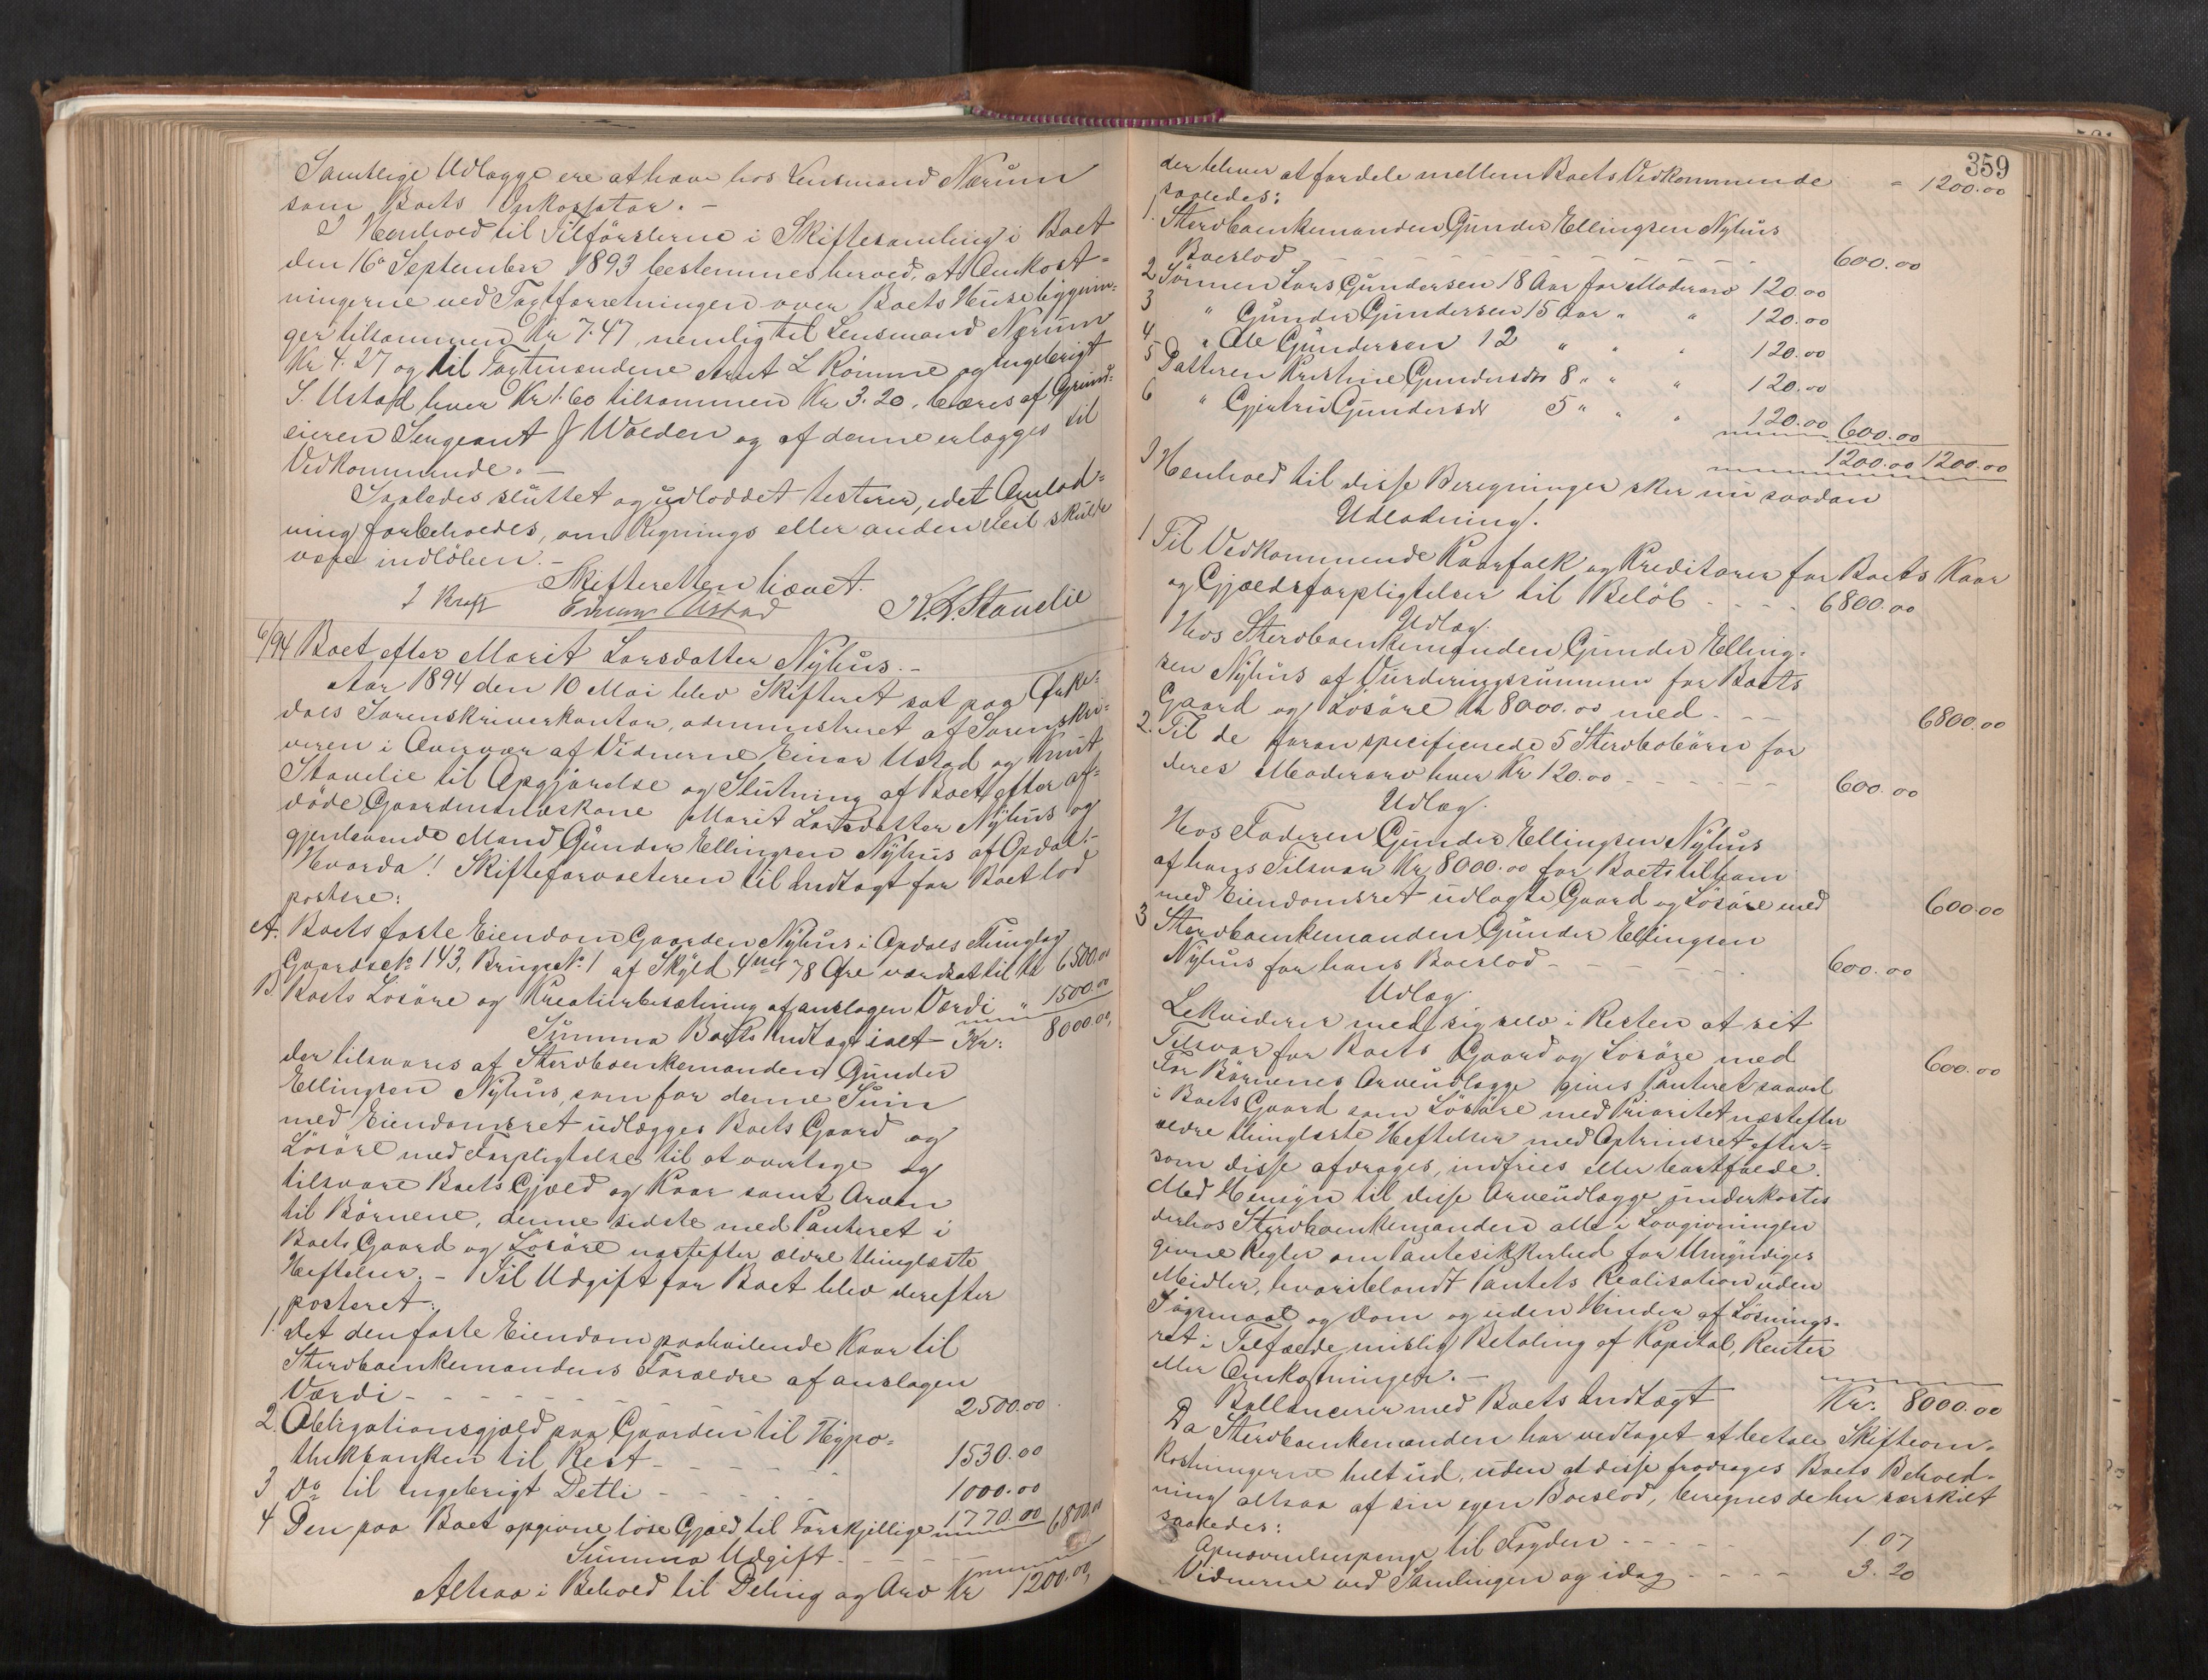 Samtlige Udlægge ere at hæve hos Lensmand Nærum
som Boets Inkassator. –
I Henhold til Tilførslerne i Skiftesamling i Boet
den 16de September 1893 bestemmes herved, at Omkost=
ningerne ved Taxtforretningen over Boets Huse liggnin=
ger tilsammen Kr 7.47, nemlig til Lensmand Nærum
Kr 4.27 og til Taxtmændene Arnt L Rømme og Ingebrigt
S. Ustad hver Kr 1.60 tilsammen Kr 3.20, bæres af Grund=
eieren Sergeant J Wolden og af denne erlægges til
Vedkommende. –
Saaledes sluttet og udloddet testerer, idet Omlod=
ning forbeholdes, om Regnings eller anden Feil skulde
være indløben. –
Skifteretten hævet.
I Kraft Einar Ustad K. L. Stavelie
6/94 Boet efter Marit Larsdatter Nyhus. –
Aar 1894 den 10 Mai blev Skifteret sat paa Orke=
dals Sorenskriverkontor, administreret af Sorenskri=
veren i Overvær af Vidnerne Einar Ustad og Knut
Stavelie til Opgjørelse og Slutning af Boet efter af=
døde Gaardmandskone Marit Larsdatter Nyhus og
gjenlevende Mand Gunder Ellingsen Nyhus af Opdal. –
Hvorda! Skifteforvalteren til Indtægt for Boet lod
postere:
A. Boets faste Eiendom Gaarden Nyhus i Opdals Thinglag
Gaards No 143, Brugs No 1 af Skyld 4 mk 78 Øre værdsat til Kr 6500.00
B. Boets Løsøre og Kreaturbesætning af anslagen Værdi " 1500.00
Summa Boets Indtægt ialt Kr: 8000.00,
der tilsvares af Stervboenkemanden Gunder
Ellingsen Nyhus, som for denne Sum
med Eiendomsret udlægges Boets Gaard og
Løsøre med Forpligtelse til at overtage og
tilsvare Boets Gjæld og Kaar samt Arven
til Børnene, denne sidste med Panteret i
Boets Gaard og Løsøre næstefter ældre thinglæste
Heftelser. – Til Udgift for Boet blev derefter
posteret:
1. Det den faste Eiendom paahvilende Kaar til
Stervboenkemandens Forældre af anslagen
Værdi - - - - - - - 2500.00
2. Obligationsgjæld paa Gaarden til Hypo=
thekbanken til Rest - - - - - - 1530.00
3 Do til Ingebrigt Detli - - - - - 1000.00
4 Den paa Boet opgivne løse Gjæld til Forskjellige 1770.00 6800.00
Summa Udgift - - - - -
Altsaa i Behold til Deling og Arv Kr 1200.00,
359
der bliver at fordele mellem Boets Vedkommende " 1200.00
saaledes:
1. Stervboenkemanden Gunder Ellingsen Nyhus
Boeslod - - - - - - - - - - 600.00
2 Sønnen Lars Gundersen 18 Aar for Moderarv 120.00
3 " Gunder Gundersen 15 Aar " " 120.00
4 " Ole Gundersen 12 " " " 120.00
5 Datteren Kristine Gundersdtr 8 " " " 120.00
6 " Gjertrud Gundersdr 5 " " " 120.00 600.00
1200.00 1200.00
I Henhold til disse Beregninger sker nu saadan
Udlodning.
1 Til Vedkommende Kaarfolk og Kreditorer for Boets Kaar
og Gjældsforpligtelser til Beløb - - - - 6800.00
Udlæg.
Hos Stervboenkemanden Gunder Elling=
sen Nyhus af Vurderingssummen for Boets
Gaard og Løsøre Kr 8000.00 med - - - 6800.00
2. Til de foran specificerede 5 Stervbobørn for
deres Moderarv hver Kr 120.00 - - - - - - 600.00
Udlæg.
Hos Faderen Gunder Ellingsen Nyhus
af hans Tilsvar Kr 8000.00 for Boets til ham
med Eiendomsret udlagte Gaard og Løsøre med 600.00
3 Stervboenkemanden Gunder Ellingsen
Nyhus for hans Boeslod - - - - - - - 600.00
Udlæg.
Lekviderer med sig selv i Resten af sit
Tilsvar for Boets Gaard og Løsøre med 600.00
For Børnenes Arveudlægge gives Panteret saavel
i Boets Gaard som Løsøre med Prioritet næstefter
ældre thinglæste Heftelser med Optrinsret efter=
som disse afdrages, indfries eller bortfalde.
Med Hensyn til disse Arveudlægge underkastes
derhos Stervboenkemanden alle i Lovgivningen
givne Regler om Pantesikkerhed for Umyndiges
Midler, hvoriblandt Pantets Realisation uden
Søgsmaal og Dom og uden Hinder af Løsnings=
ret i Tilfælde mislig Betaling af Kapital, Renter
eller Omkostninger. –
Ballancerer med Boets Indtægt Kr: 8000.00
Da Stervboenkemanden har vedtaget at betale Skifteom=
kostningerne helt ud, uden at disse fradrages Boets Behold=
ning altsaa af sin egen Boeslod, beregnes de her særskilt
saaledes:
Opnævnelsespenge til Fogden - - - - - 1 07
Vidnerne ved Samlingen og idag - - - - 3. 20